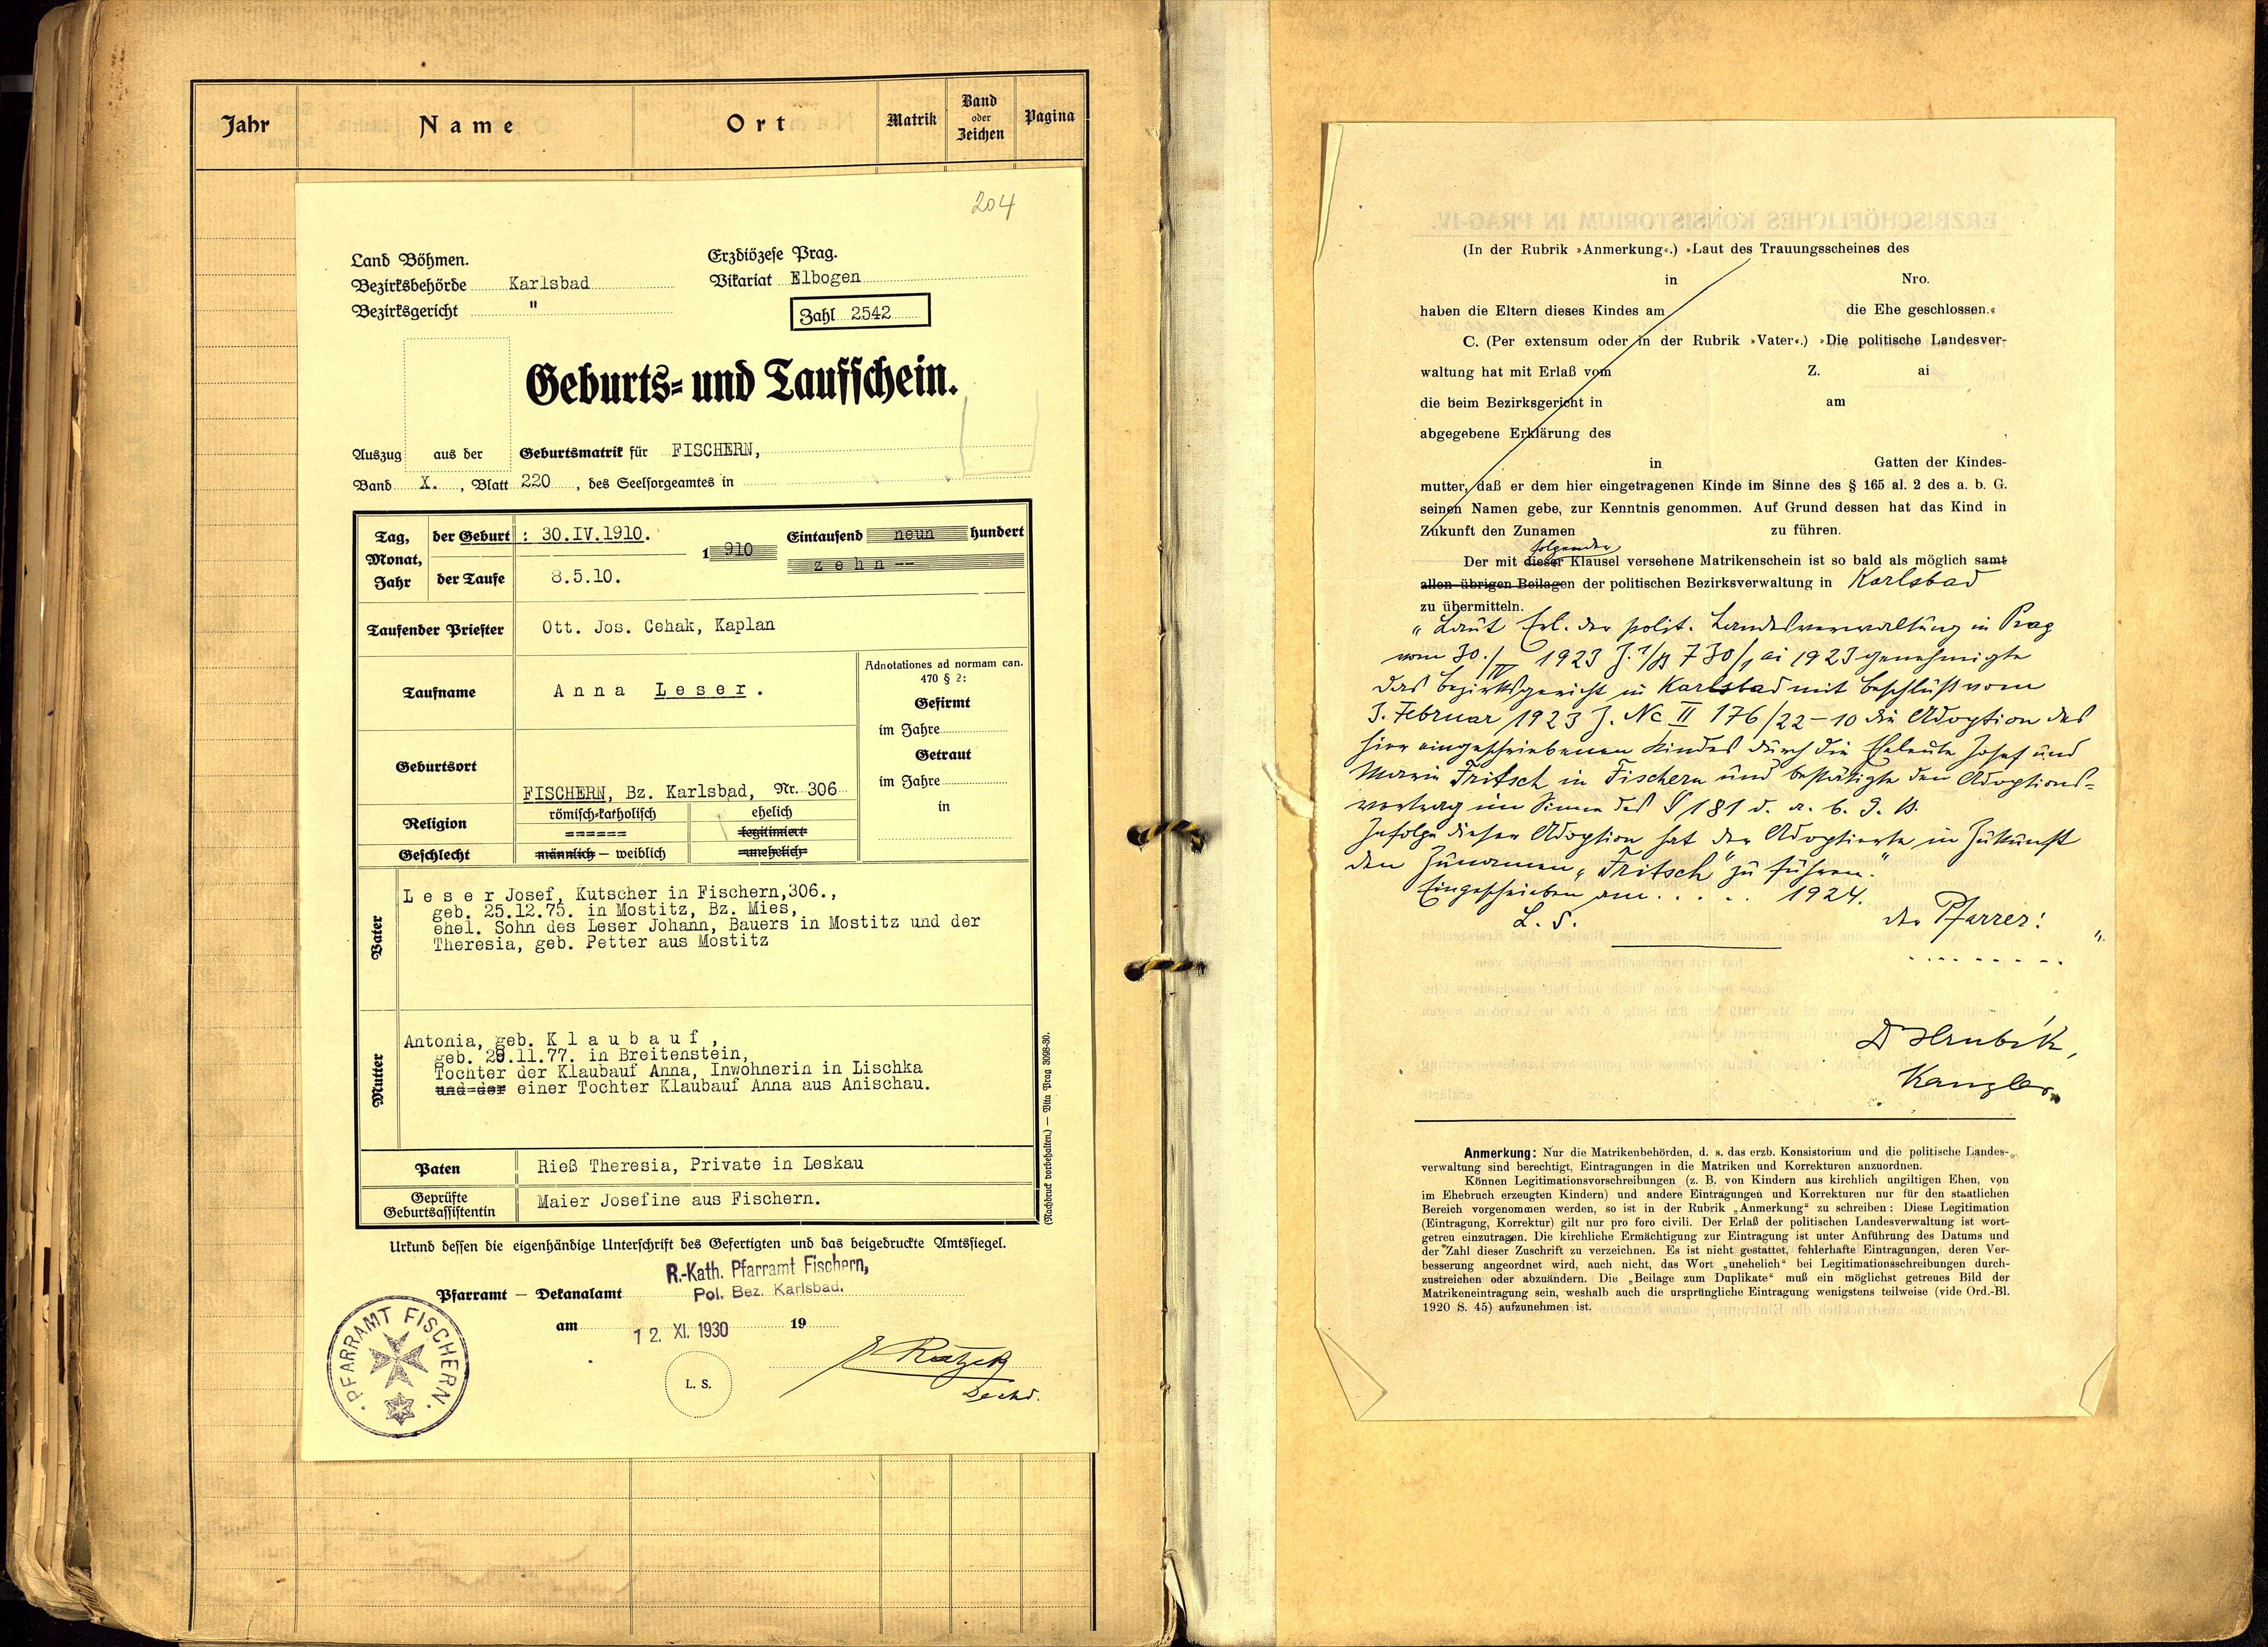 Jahr Name Ort Matrik Band oder Zeichen Pagina
204
Land Böhmen.
Bezirksbehörde Karlsbad
Bezirksgericht "
Erzdiözese Prag.
Vikariat Elbogen
Zahl 2542
Geburts- und Taufschein.
Auszug aus der Geburtsmatrik für FISCHERN,
Band X. , Blatt 220 , des Seelsorgeamtes in
Tag, Monat, Jahr
der Geburt : 30.IV.1910.
der Taufe 8.5.10.
1 910
Eintausend neun hundert
zehn--
Taufender Priester Ott. Jos. Cehak, Kaplan
Taufname Anna Leser.
Geburtsort FISCHERN, Bz. Karlsbad, Nr. 306
Adnotationes ad normam can.
470 § 2:
Gefirmt
im Jahre
Getraut
im Jahre
in
Religion römisch-katholisch
======
ehelich
legitimiert
unehelich
Geschlecht männlich — weiblich
Vater
Leser Josef, Kutscher in Fischern,306.,
geb. 25.12.75. in Mostitz, Bz. Mies,
ehel. Sohn des Leser Johann, Bauers in Mostitz und der
Theresia, geb. Petter aus Mostitz
Mutter
Antonia, geb. Klaubauf,
geb. 29.11.77. in Breitenstein,
Tochter der Klaubauf Anna, Inwohnerin in Lischka
und=der einer Tochter Klaubauf Anna aus Anischau.
Paten Rieß Theresia, Private in Leskau
Geprüfte
Geburtsassistentin Maier Josefine aus Fischern.
(Nachdruck vorbehalten.) — Vita Prag 3098-30.
Urkund dessen die eigenhändige Unterschrift des Gefertigten und das beigedruckte Amtssiegel.
R.-Kath. Pfarramt Fischern,
Pfarramt — Dekanalamt Pol. Bez. Karlsbad.
am 12. XI. 1930 19
PFARRAMT FISCHERN.
L. S.
Dechd.
ERZBISCHÖFLICHES KONSISTORIUM IN PRAG-IV.
(In der Rubrik »Anmerkung«.) »Laut des Trauungsscheines des
in Nro.
haben die Eltern dieses Kindes am die Ehe geschlossen.«
C. (Per extensum oder in der Rubrik »Vater«.) »Die politische Landesver-
waltung hat mit Erlaß vom Z. ai
die beim Bezirksgericht in am
abgegebene Erklärung des
in Gatten der Kindes-
mutter, daß er dem hier eingetragenen Kinde im Sinne des § 165 al. 2 des a. b. G.
seinen Namen gebe, zur Kenntnis genommen. Auf Grund dessen hat das Kind in
Zukunft den Zunamen zu führen.
folgender
Der mit dieser Klausel versehene Matrikenschein ist so bald als möglich samt
allen übrigen Beilagen der politischen Bezirksverwaltung in Karlsbad
zu übermitteln.
"Laut Erl. der polit. Landesverwaltung in Prag
vom 30./IV 1923 ai 1923 genehmigte
das Bezirksgericht in Karlsbad mit Beschluß vom
3. Februar 1923 Z. Nc II 176/22-10 die Adoption des
hier eingeschriebenen Kindes durch die Eheleute Josef und
Marie Fritsch in Fischern und bestätigte den Adoptions-
vertrag im Sinne des § 181 d. a. b. G. B.
Zufolge dieser Adoption hat der Adoptierte in Zukunft
den Zunamen "Fritsch" zu führen."
Eingeschrieben am..... 1924.
L. S. der Pfarrer:
Dr Hrubík,
Kanzler.
Anmerkung: Nur die Matrikenbehörden, d. s. das erzb. Konsistorium und die politische Landes-
verwaltung sind berechtigt, Eintragungen in die Matriken und Korrekturen anzuordnen.
Können Legitimationsvorschreibungen (z. B. von Kindern aus kirchlich ungiltigen Ehen, von
im Ehebruch erzeugten Kindern) und andere Eintragungen und Korrekturen nur für den staatlichen
Bereich vorgenommen werden, so ist in der Rubrik „Anmerkung“ zu schreiben: Diese Legitimation
(Eintragung, Korrektur) gilt nur pro foro civili. Der Erlaß der politischen Landesverwaltung ist wort-
getreu einzutragen. Die kirchliche Ermächtigung zur Eintragung ist unter Anführung des Datums und
der Zahl dieser Zuschrift zu verzeichnen. Es ist nicht gestattet, fehlerhafte Eintragungen, deren Ver-
besserung angeordnet wird, auch nicht, das Wort „unehelich“ bei Legitimationsschreibungen durch-
zustreichen oder abzuändern. Die „Beilage zum Duplikate“ muß ein möglichst getreues Bild der
Matrikeneintragung sein, weshalb auch die ursprüngliche Eintragung wenigstens teilweise (vide Ord.-Bl.
1920 S. 45) aufzunehmen ist.